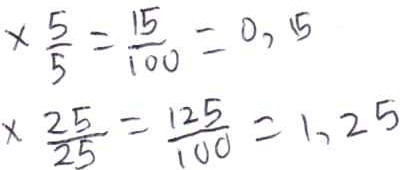 × 5/5 = 15/100 = 0,15
× 25/25 = 125/100 = 1,25